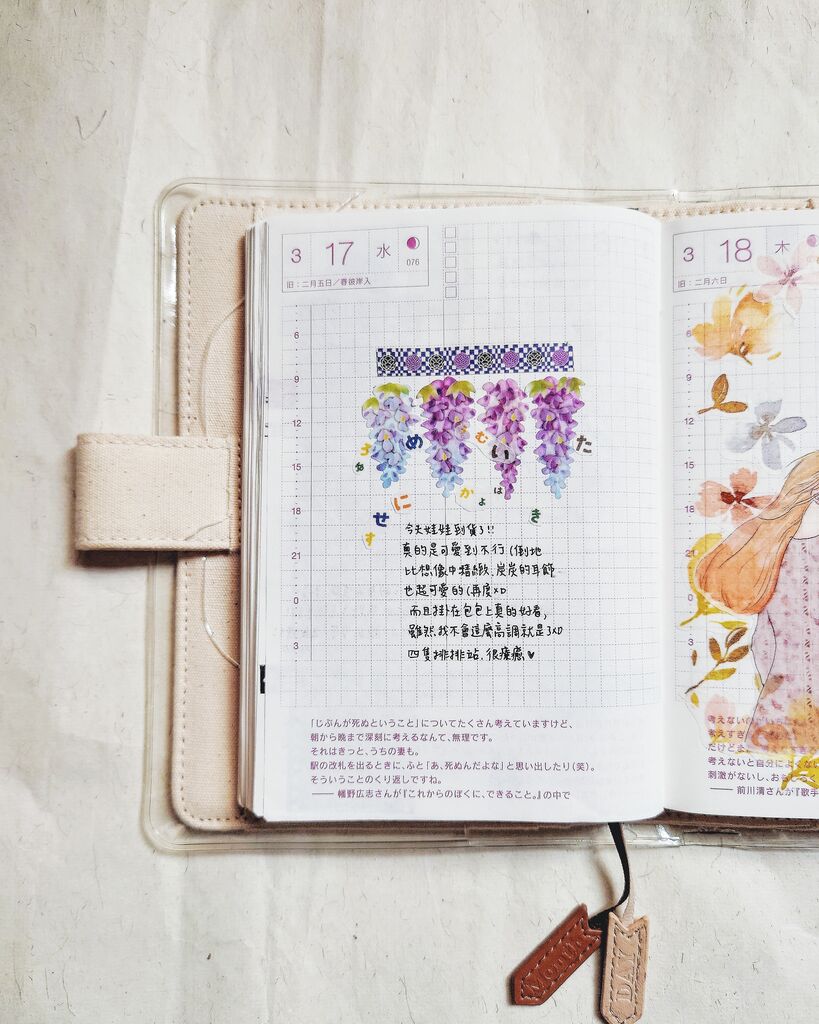 3 17 水
076
旧：二月五日／春彼岸入
6
9
12
15
18
21
0
3
ろ め む い た
ぬ
に か よ は
せ き
す
今天娃娃到貨了!!
真的是可愛到不行(倒地
比想像中精緻、炭炭的耳飾
也超可愛的(再度XD
而且掛在包包上真的好看，
雖然我不會這麼高調就是了XD
四隻排排站、很療癒♥
「じぶんが死ぬということ」についてたくさん考えていますけど、
朝から晩まで深刻に考えるなんて、無理です。
それはきっと、うちの妻も。
駅の改札を出るときに、ふと「あ、死ぬんだよな」と思い出したり（笑）。
そういうことのくり返しですね。
—— 幡野広志さんが『これからのぼくに、できること。』の中で
3 18 木
旧：二月六日
6
9
12
15
18
21
0
3
考えないの
考えすぎ
だけど
考えないと自分によくない
刺激がないし、お
—— 前川清さんが『歌手
Month
DAY